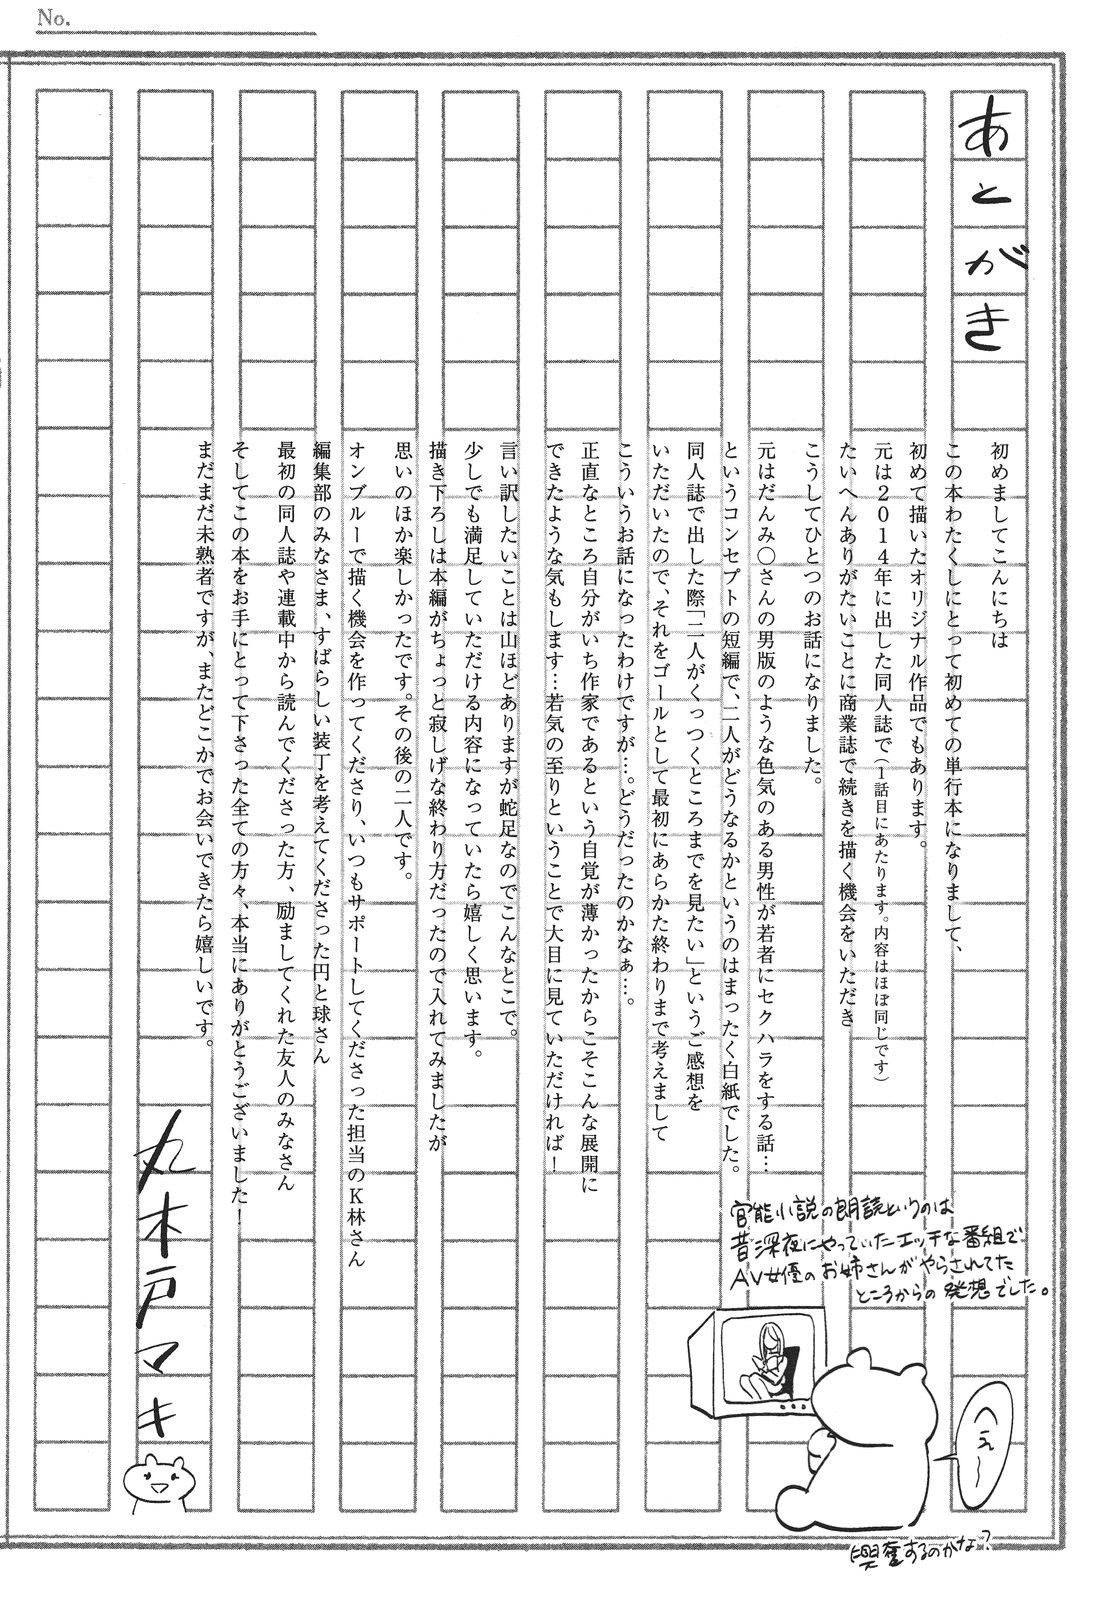 No.
あとがき
初めましてこんにちは
この本わたくしにとって初めての単行本になりまして、
初めて描いたオリジナル作品でもあります。
元は２０１４年に出した同人誌で（１話目にあたります。内容はほぼ同じです）
たいへんありがたいことに商業誌で続きを描く機会をいただき
こうしてひとつのお話になりました。
元はだんみ〇さんの男版のような色気のある男性が若者にセクハラをする話…
というコンセプトの短編で、二人がどうなるかというのはまったく白紙でした。
同人誌で出した際「二人がくっつくところまでを見たい」というご感想を
いただいたので、それをゴールとして最初にあらかた終わりまで考えまして
こういうお話になったわけですが…。どうだったのかなぁ…。
正直なところ自分がいち作家であるという自覚が薄かったからこそこんな展開に
できたような気もします…若気の至りということで大目に見ていただければ！
言い訳したいことは山ほどありますが蛇足なのでこんなとこで。
少しでも満足していただける内容になっていたら嬉しく思います。
描き下ろしは本編がちょっと寂しげな終わり方だったので入れてみましたが
思いのほか楽しかったです。その後の二人です。
オンブルーで描く機会を作ってくださり、いつもサポートしてくださった担当のＫ林さん
編集部のみなさま、すばらしい装丁を考えてくださった円と球さん
最初の同人誌や連載中から読んでくださった方、励ましてくれた友人のみなさん
そしてこの本をお手にとって下さった全ての方々、本当にありがとうございました！
まだまだ未熟者ですが、またどこかでお会いできたら嬉しいです。
丸木戸マキ
官能小説の朗読というのは
昔深夜にやっていたエッチな番組で
AV女優のお姉さんがやらされてた
ところからの発想でした。
へぇ〜
興奮するのかな？